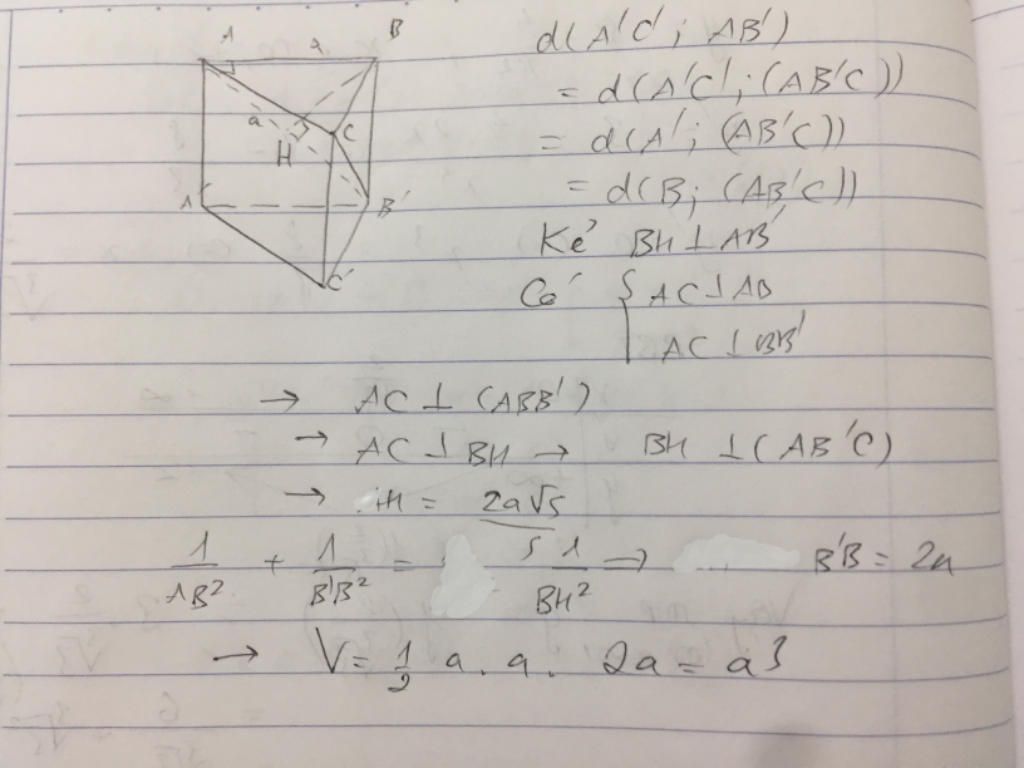 A a B
a C
H
A' B'
C'
d(A'C'; AB')
= d(A'C'; (AB'C))
= d(A'; (AB'C))
= d(B; (AB'C))
Kẻ BH ⊥ AB'
Có { AC ⊥ AB
AC ⊥ BB'
→ AC ⊥ (ABB')
→ AC ⊥ BH → BH ⊥ (AB'C)
→ BH = 2a√5 / 5
1/AB² + 1/B'B² = 1/BH² ⇒ B'B = 2a
→ V = 1/2 a . a . 2a = a³